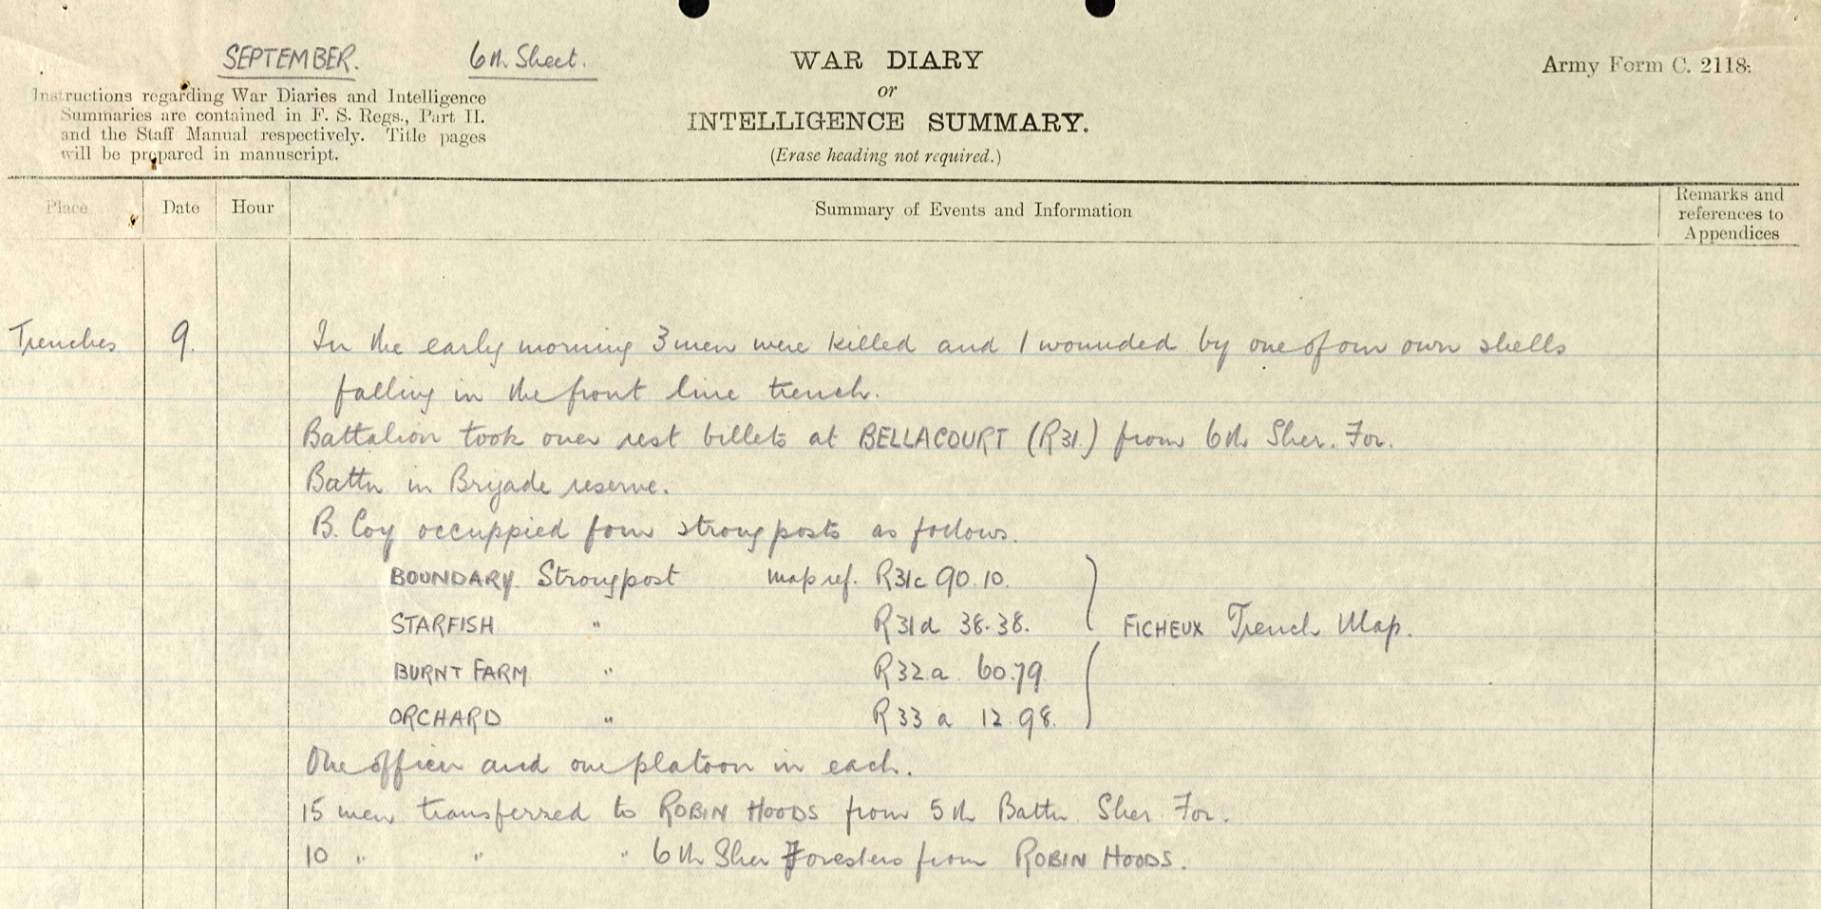 SEPTEMBER. 6th Sheet.
WAR DIARY
or
INTELLIGENCE SUMMARY.
(Erase heading not required.)
Army Form C. 2118.
Instructions regarding War Diaries and Intelligence
Summaries are contained in F. S. Regs., Part II.
and the Staff Manual respectively. Title pages
will be prepared in manuscript.
Place Date Hour Summary of Events and Information Remarks and
references to
Appendices
Trenches 9. In the early morning 3 men were killed and 1 wounded by one of our own shells
falling in the front line trench.
Battalion took over rest billets at BELLACOURT (R31.) from 6th Sher. For.
Battn in Brigade reserve.
B. Coy occuppied four strong posts as follows.
BOUNDARY Strongpost map ref. R31c 90.10.
STARFISH " R31d 38.38. FICHEUX Trench Map.
BURNT FARM " R32.a 60.79
ORCHARD " R33 a 12.98.
One officer and one platoon in each.
15 men transferred to ROBIN HOODS from 5th Battn Sher For.
10 " " " 6th Sher Foresters from ROBIN HOODS.